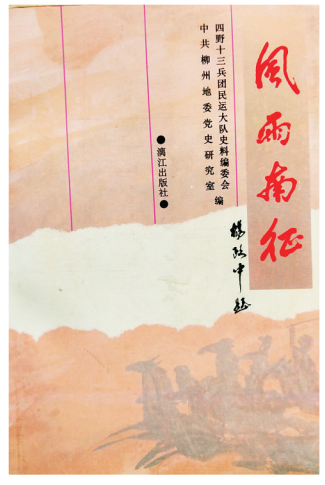 風雨南征
四野十三兵团民运大队史料编委会
中共柳州地委党史研究室
编
●漓江出版社●